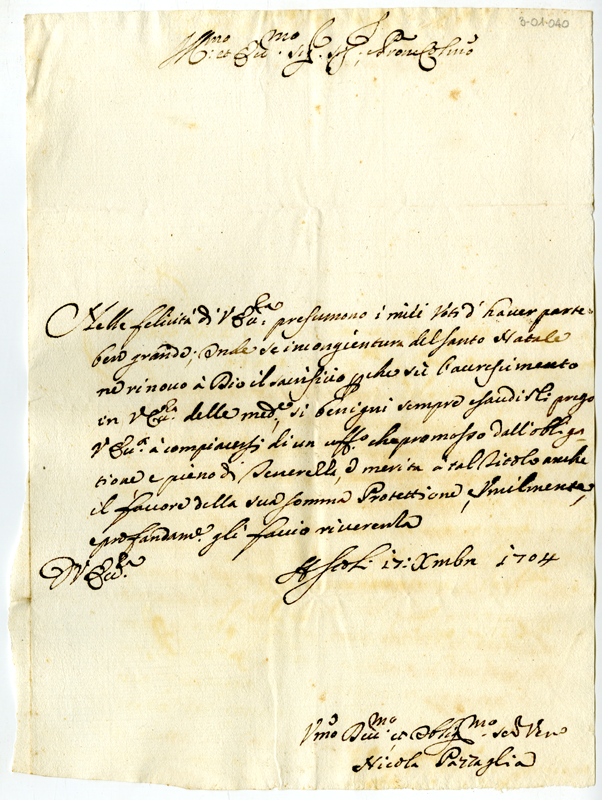 3-01-040
Ill.mo et Ecc.mo Sig. Sig. Pron Col.mo
Nelle felicità di V Ecc.za presumono i miei Voti d'haver parte
ben grande; Onde se in congientura del Santo Natale
ne rinovo à Dio il sacrificio che sii l'accrescimento
in V Ecc.za delle med.e si benigni sempre esaudirli, prego
V Ecc.a à compiacersi di un uff.o che promosso dall'obliga-
tione e pieno di merita à tal titolo anche
il favore della sua somma Protettione, e Umilmente,
e profondam.e gli faccio riverenza
D V Ecc.za
Ascoli 17: Xmbre 1704
Vmo Dev.mo et Oblig.mo Ser Vero
Nicola Pazzaglia